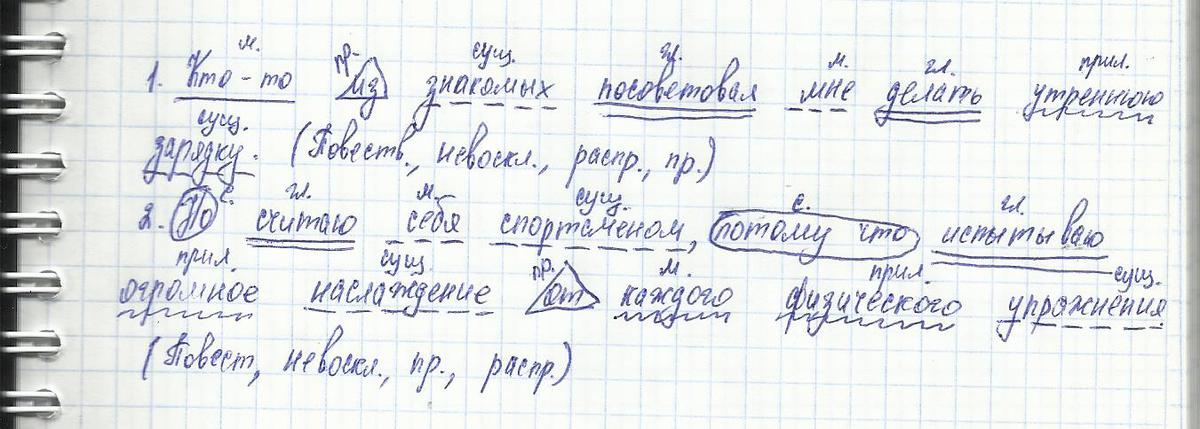 м. пр. сущ. гл. м. гл. прил.
1. Кто-то из знакомых посоветовал мне делать утреннюю
сущ.
зарядку. (Повеств., невоскл., распр., пр.)
с. гл. м. сущ. с. гл.
2. По считаю себя спортсменом, потому что испытываю
прил. сущ. пр. м. прил. сущ.
огромное наслаждение от каждого физического упражнения
(Повест, невоскл., пр., распр.)